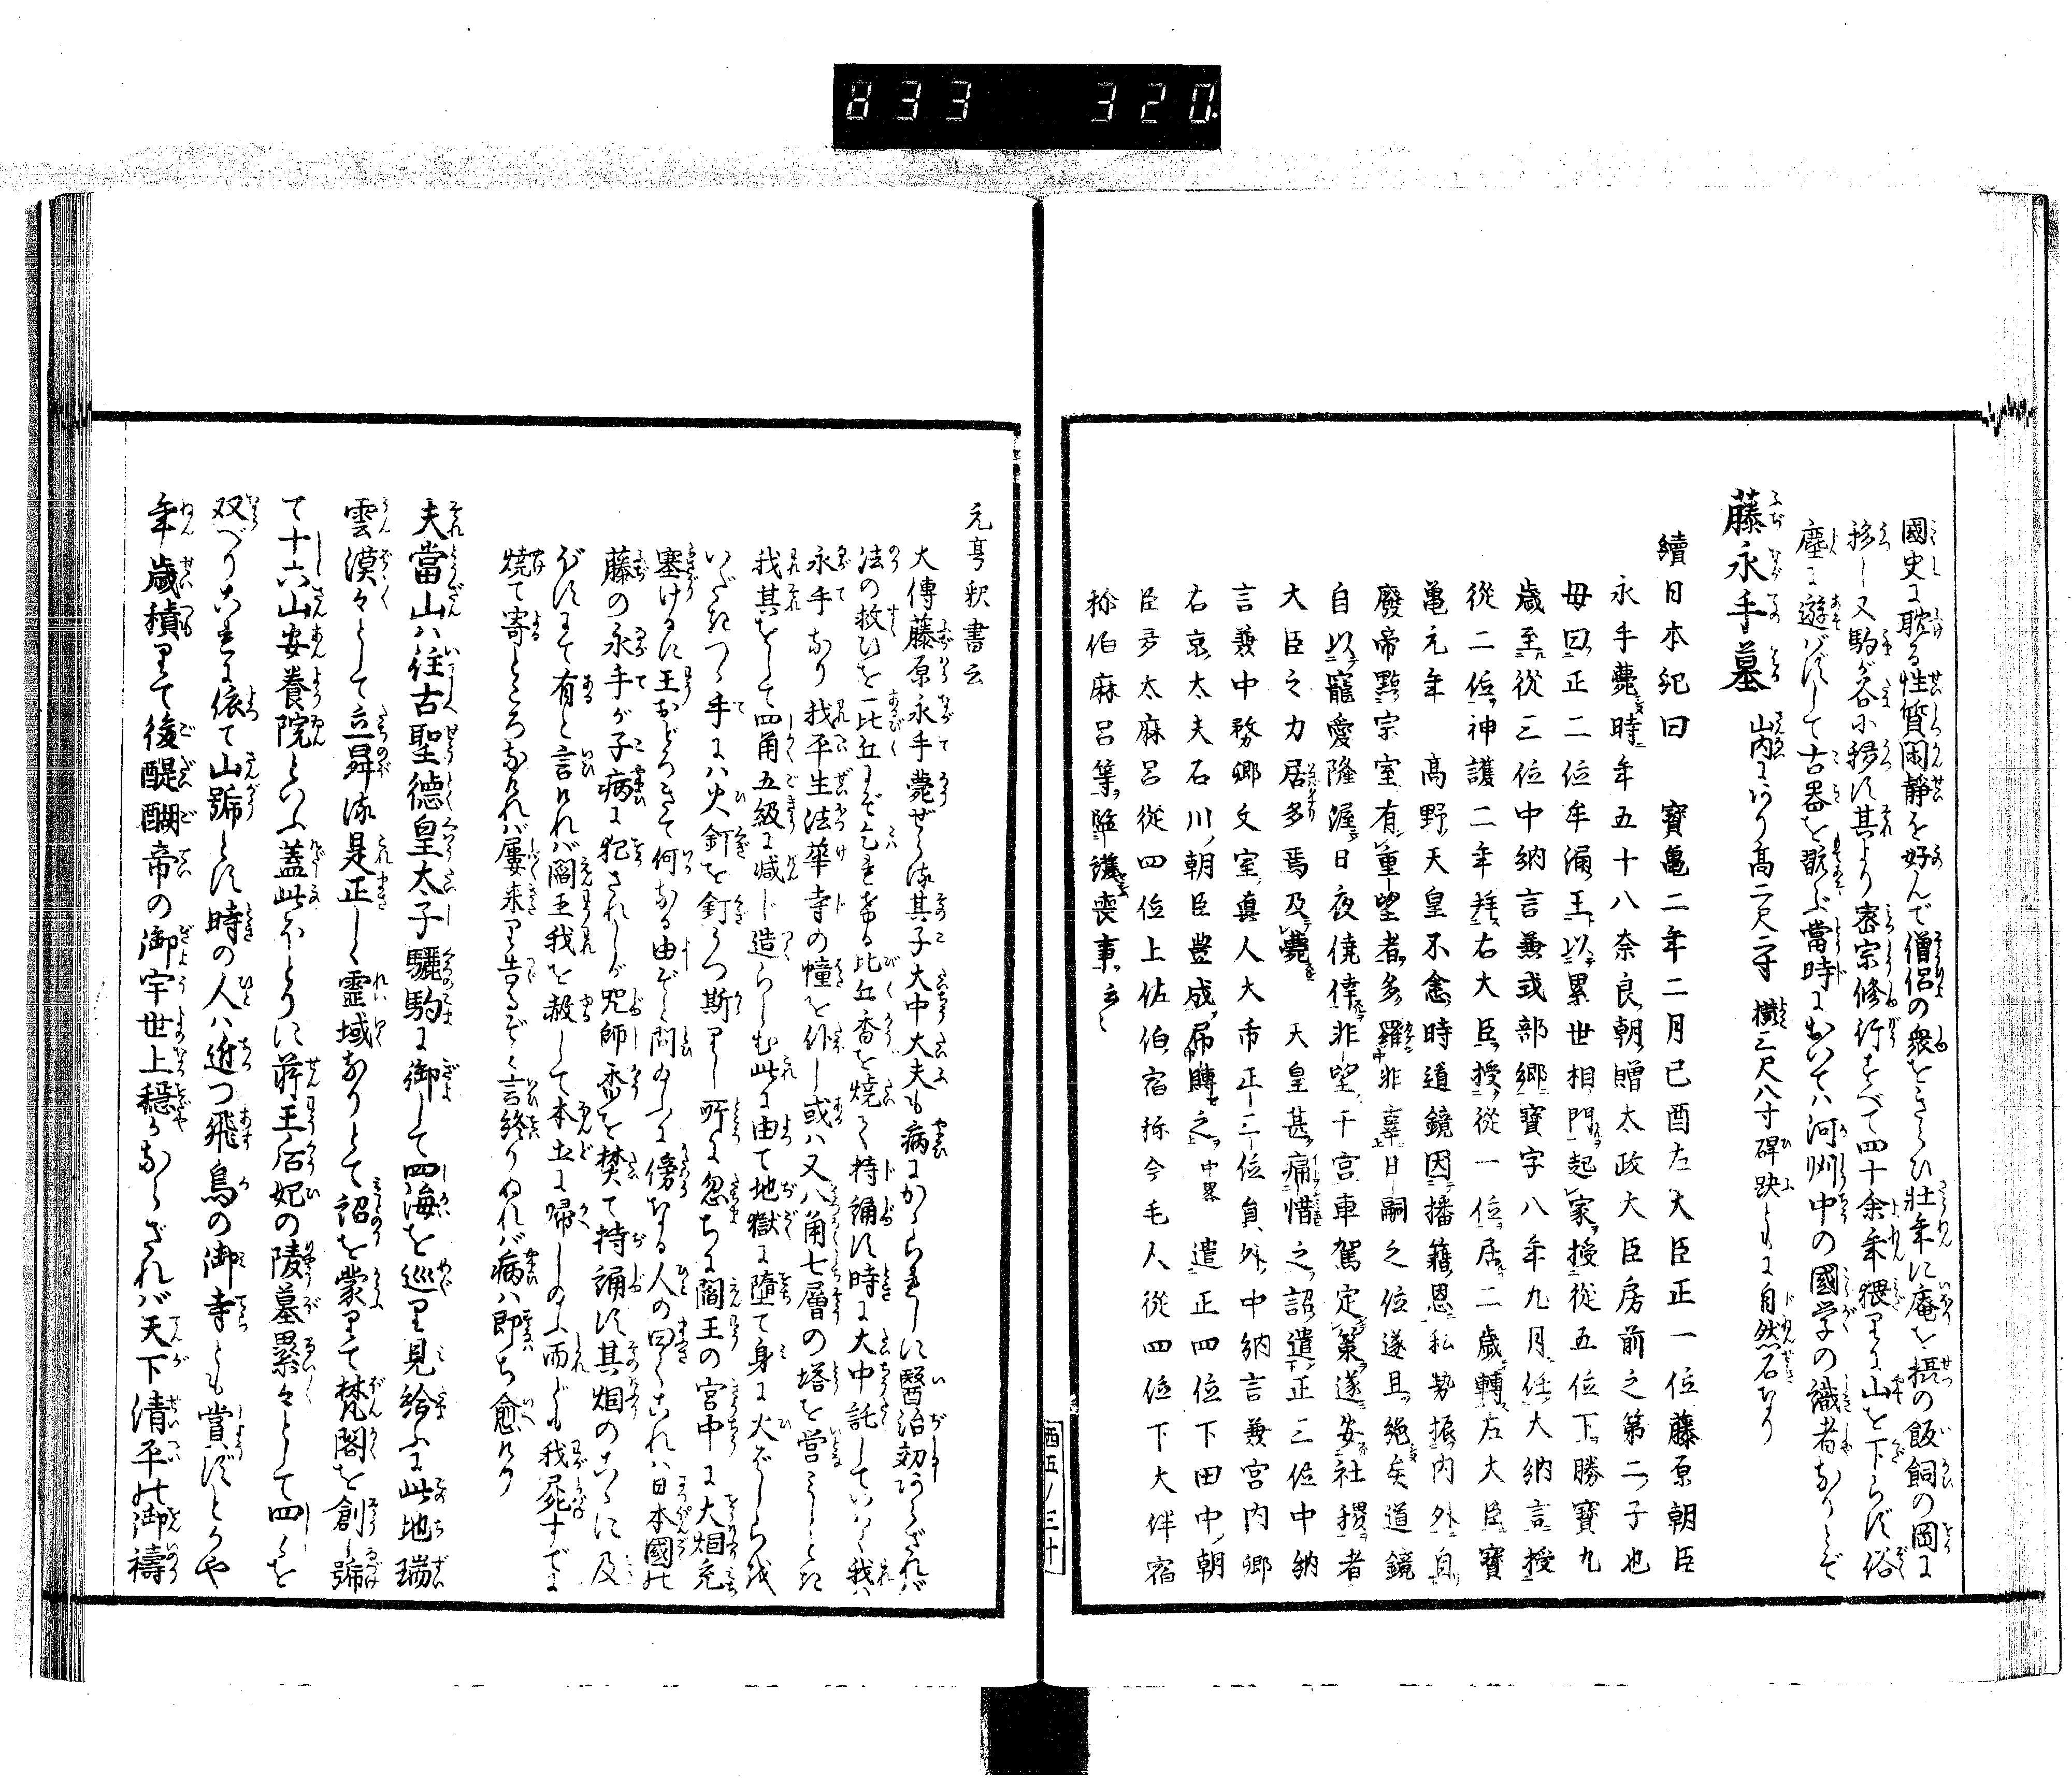 833 320
國史に耽る性質閑静を好んで僧侶の衆をきらひ壮年に庵を摂の飯飼の岡に
移し又駒が谷に移す其より密宗修行すべて四十余年猥りに山を下らず俗
塵に遊ばずして古器を翫ぶ當時においては河州中の國学の識者なりとぞ
藤永手墓 山内にあり高二尺二寸横二尺八寸碑趺ともに自然石なり
續日本紀曰 寳亀二年二月己酉左大臣正一位藤原朝臣
永手薨時年五十八奈良朝贈太政大臣房前之第二子也
母曰正二位牟漏王以累世相門起家授從五位下勝寳九
歳至從三位中納言兼式部卿寳字八年九月任大納言授
從二位神護二年拜右大臣授從一位居二歳轉左大臣寳
亀元年 高野天皇不悆時道鏡因播籍恩私勢振内外自
廢帝黜宗室有重望者多羅非辜日嗣之位遂且絶矣道鏡
自以寵愛隆渥日夜僥倖非望干宮車駕定策遂安社稷者
大臣之力居多焉及薨 天皇甚痛惜之詔遣正三位中納
言兼中務卿文室真人大市正三位員外中納言兼宮内卿
右京太夫石川朝臣豊成弔賻之 中畧 遣正四位下田中朝
臣多太麻呂從四位上佐伯宿祢今毛人從四位下大伴宿
祢伯麻呂等監護喪事云々
西五ノ三十
元亨釈書云
大傳藤原永手薨ぜらる其子大中大夫も病にかゝられしに醫治効あらざれば
法の救ひを一比丘にぞ乞はる比丘香を焼て持誦す時に大中託していはく我は
永手なり我平生法華寺の幢を仆し或は又八角七層の塔を営しとき
我其をして四角五級に减じ造らしむ此に由て地獄に墮て身に火ばしらを
いだきつゝ手には火釘を釘うつ斯りし所に忽ちに閻王の宮中に大烟充
塞けるに王おどろきて何なる由ぞと問ふに傍なる人の曰くこれは日本國の
藤の永手が子病に犯されしが咒師香を焚て持誦す其烟のこゝに及
ぼすにて有と言ければ閻王我を赦して本土に帰しめ而ども我死すでに
焼て寄ところなければ屢来り告るぞと言終りぬれば病は即ち愈けり
夫當山は往古聖德皇太子驪駒に御して四海を巡り見給ふに此地瑞
雲漠々として立昇る是正しく霊域なりとて詔を蒙りて梵閣を創し號
て十六山安養院といふ蓋此ほとりに荷王后妃の陵墓累々として四々を
双べりこれに依て山號とす時の人は近つ飛鳥の御寺とも賞ずとかや
年歳積りて後醍醐帝の御宇世上穏かならざれば天下清平の御禱